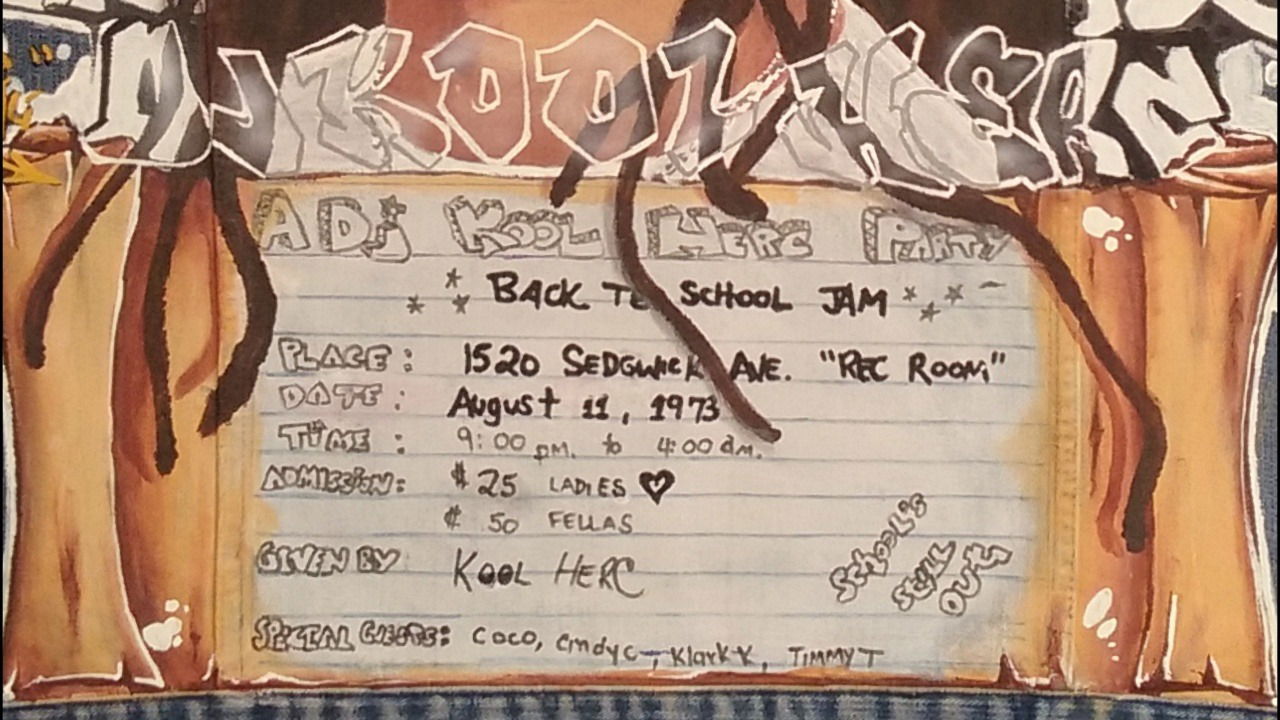 DJ KOOL HERC
A DJ KOOL HERC PARTY
BACK TO SCHOOL JAM
PLACE: 1520 SEDGWICK AVE. "REC ROOM"
DATE: August 11, 1973
TIME: 9:00 pm. to 4:00 am.
ADMISSION: $ 25 LADIES ♥
¢ 50 FELLAS
GIVEN BY KOOL HERC
SPECIAL GUESTS: COCO, Cindy C, Klark K, TIMMY T
SCHOOL'S
STILL
OUT